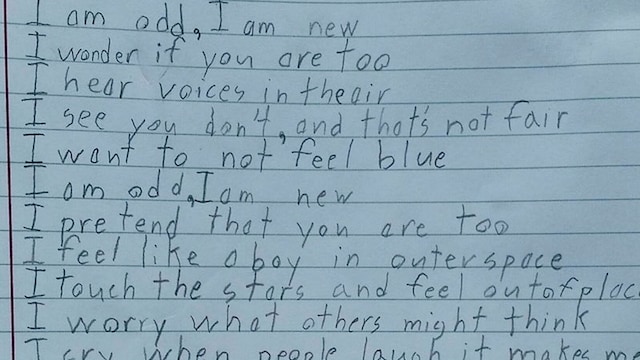 I am odd, I am new
I wonder if you are too
I hear voices in theair
I see you don't, and that's not fair
I want to not feel blue
I am odd, I am new
I pretend that you are too
I feel like a boy in outerspace
I touch the stars and feel outofplac
I worry what others might think
I cry when people laugh it makes m